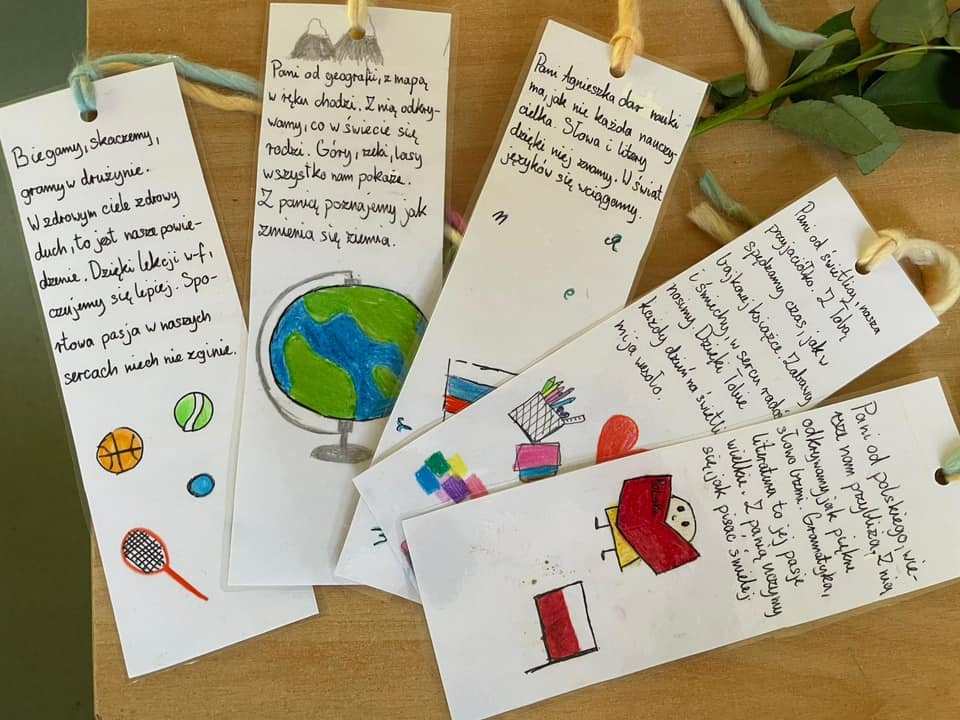 Biegamy, skaczemy,
gramy w drużynie.
W zdrowym ciele zdrowy
duch, to jest nasze powie-
dzenie. Dzięki lekcji w-f,
czujemy się lepiej. Spo-
rtowa pasja w naszych
sercach niech nie zginie.
Pani od geografii, z mapą
w ręku chodzi. Z nią odkry-
wamy, co w świecie się
rodzi. Góry, rzeki, lasy
wszystko nam pokaże.
Z panią poznajemy jak
zmienia się ziemia.
Pani Agnieszka dar nauki
ma, jak nie każda nauczy-
cielka. Słowa i litery
dzięki niej znamy. W świat
języków się wciągamy.
Pani od świetlicy, nasza
przyjaciółko. Z Tobą
spędzamy czas, jak w
bajkowej książce. Zabawy
i śmiechy, w sercu rado
nosimy. Dzięki Tobie
każdy dzień na świetli
mija wesoło.
Pani od polskiego, wie-
rsze nam przybliża. Z nią
odkrywamy jak pięknie
słowo brzmi. Gramatyka,
literatura to jej pasje
wielkie. Z panią uczymy
się, jak pisać śmielej.